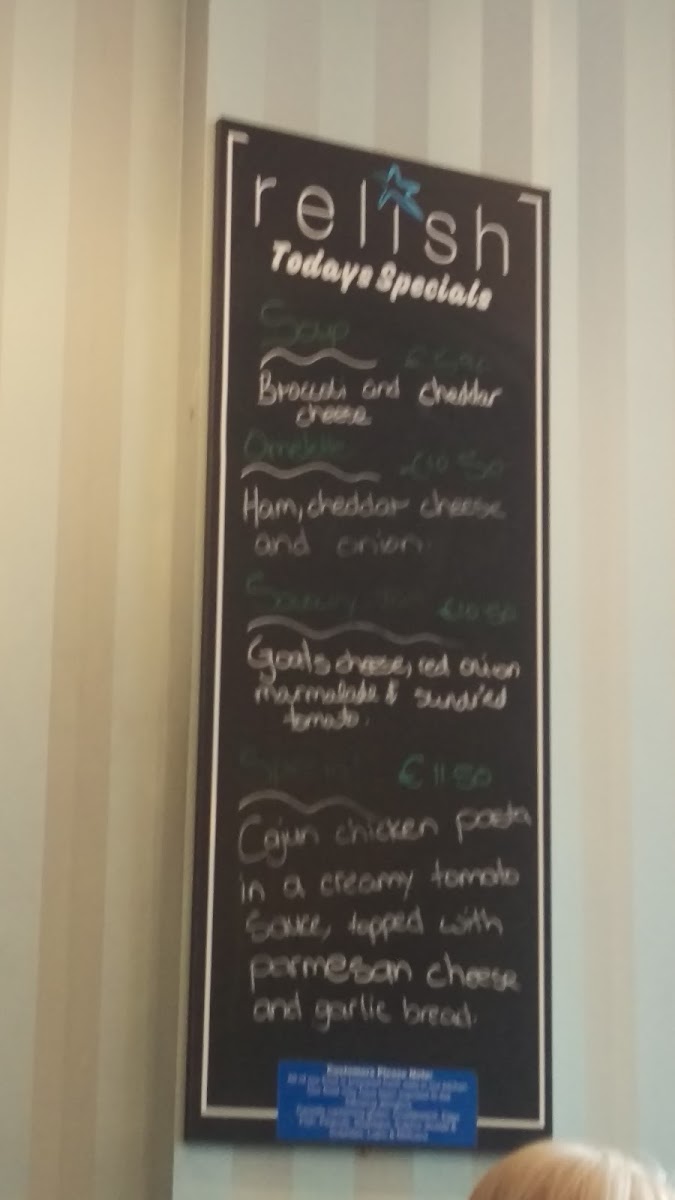 relish
Todays Specials
Soup
Broccoli and cheddar
cheese
Omelette €10.50
Ham, cheddar cheese
and onion.
Savoury €10.50
Goats cheese, red onion
marmalade & sundried
tomato.
Special €11.50
Cajun chicken pasta
in a creamy tomato
sauce, topped with
parmesan cheese
and garlic bread.
Customers Please Note: